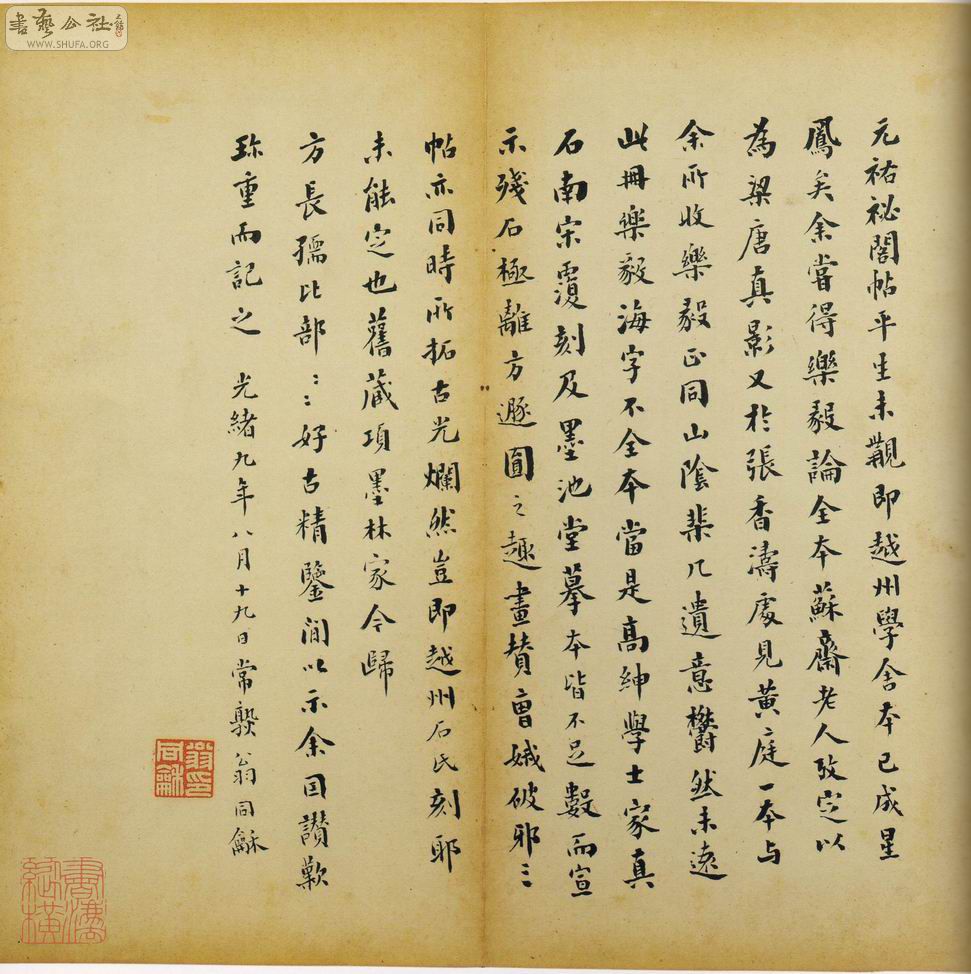 元祐祕閣帖平生未覯即越州學舍本已成星
鳳矣余嘗得樂毅論全本蘇齋老人攷定以
為梁唐真影又於張香濤處見黃庭一本与
余所收樂毅正同山陰棐几遺意鬱然未遠
此冊樂毅海字不全本當是高紳學士家真
石南宋覆刻及墨池堂摹本皆不足數而宣
示殘石極離方遯圓之趣畫贊曹娥破邪三
帖亦同時所拓古光爛然豈即越州石氏刻耶
未能定也舊藏項墨林家今歸
方長孺比部：：好古精鑒閒以示余因讚歎
珍重而記之 光緒九年八月十九日常熟翁同龢
翁印同龢
書譜縱橫
書藝公社
WWW.SHUFA.ORG